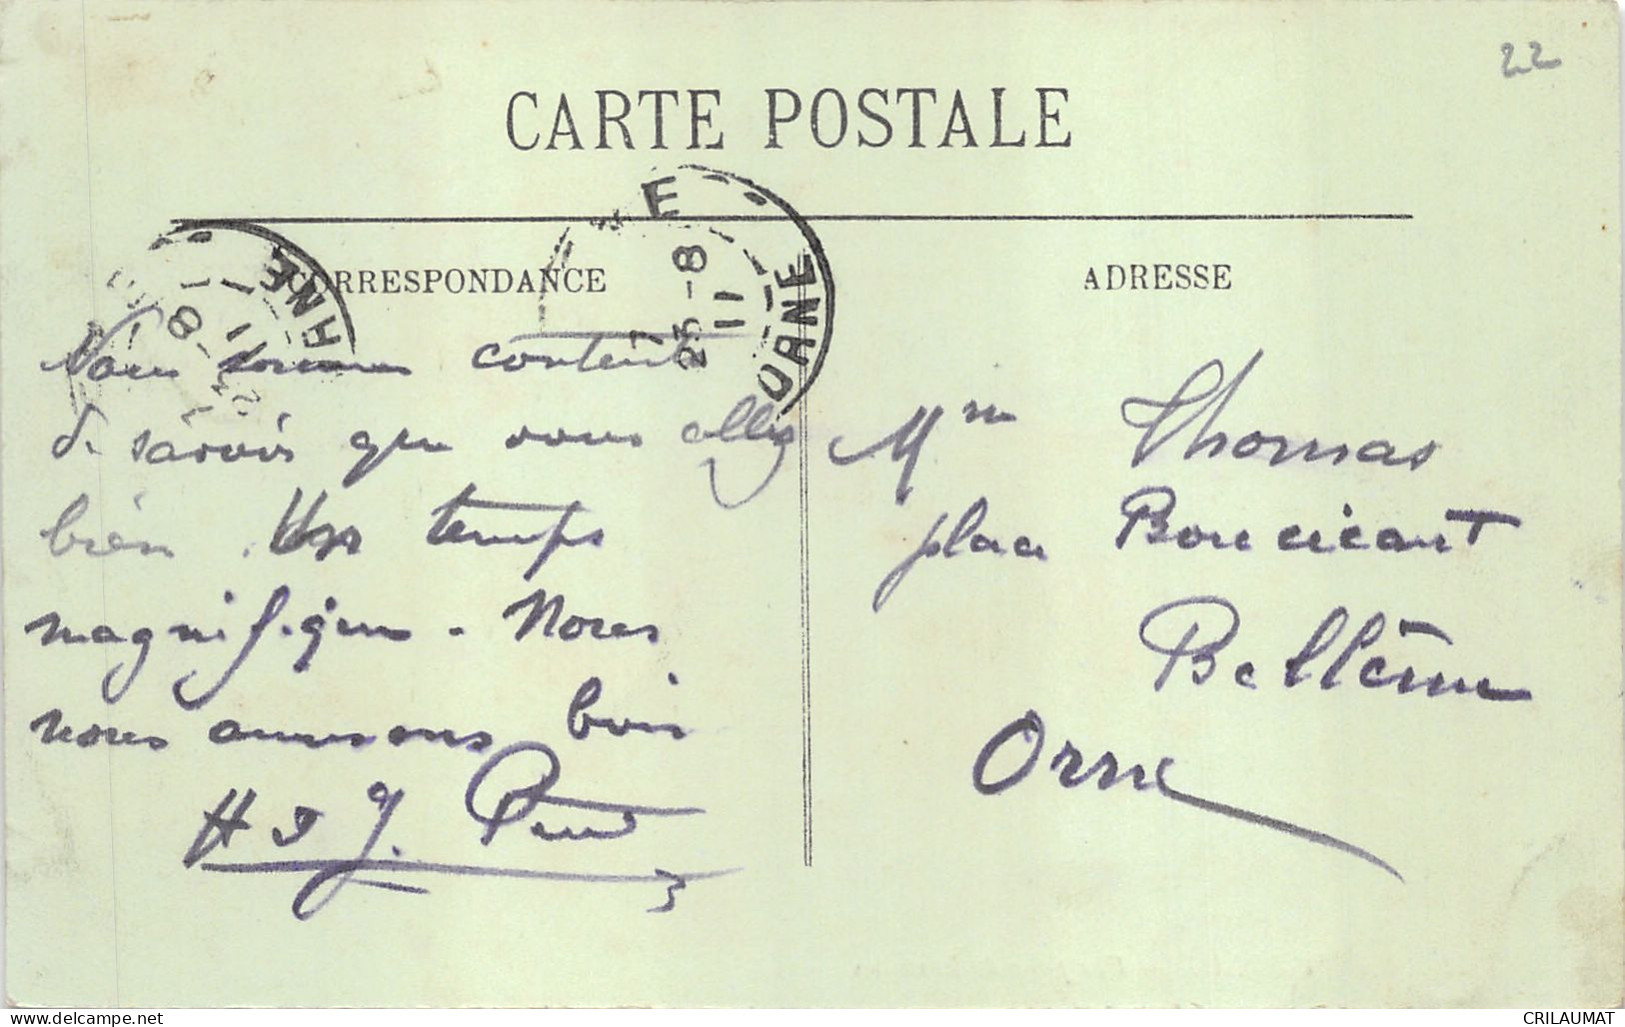 22
CARTE POSTALE
CORRESPONDANCE
ADRESSE
E
23-8
11
ORNE
8
11
RNE
Nous sommes contents
de savoir que vous allez
bien. temps
magnifique. Nous
nous amusons bien
H & J.
Mme Thomas
place Boucicaut
Bellême
Orne
CRILAUMAT